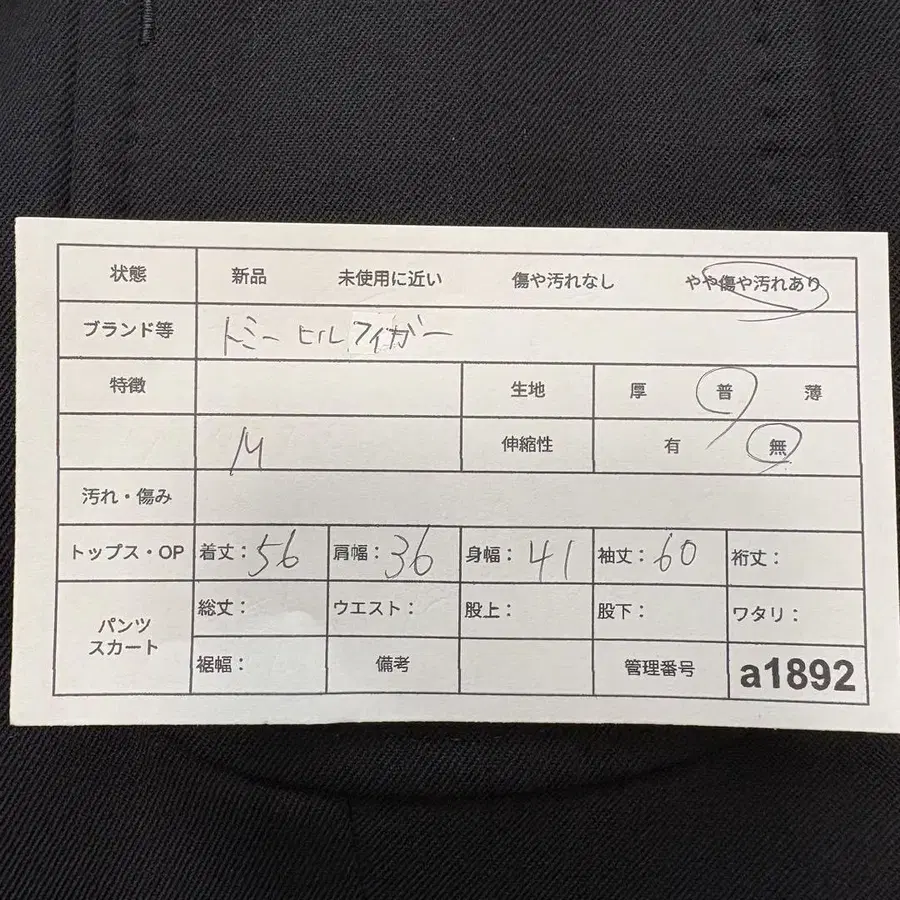 状態 新品 未使用に近い 傷や汚れなし やや傷や汚れあり
ブランド等 トミーヒルフィガー
特徴 生地 厚 普 薄
M 伸縮性 有 無
汚れ・傷み
トップス・OP 着丈：56 肩幅：36 身幅：41 袖丈：60 裄丈：
パンツ
スカート
総丈： ウエスト： 股上： 股下： ワタリ：
裾幅： 備考 管理番号 a1892